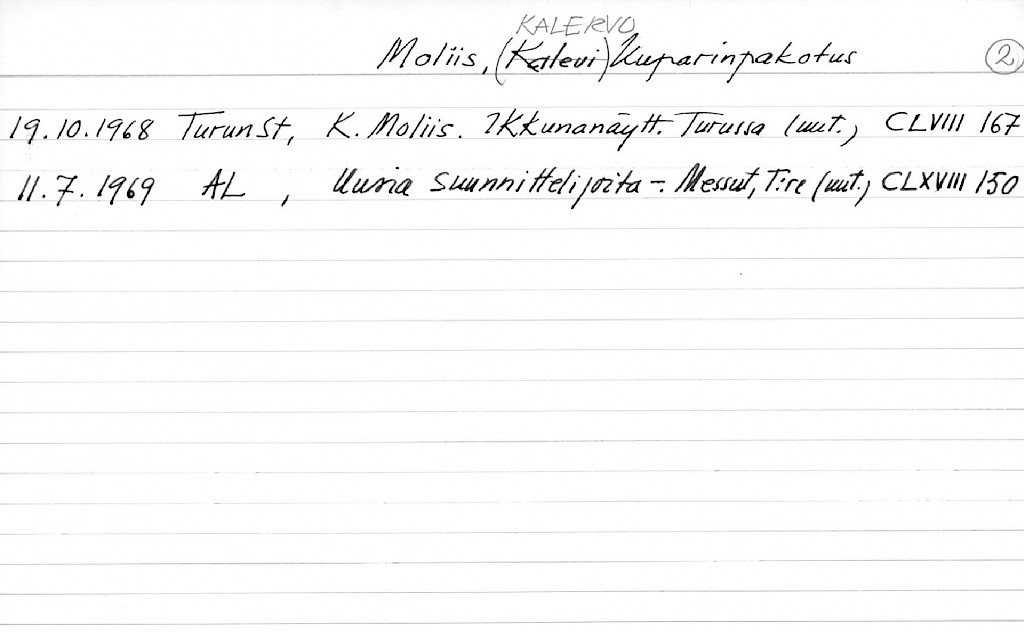 KALERVO
Moliis, (Kalevi) Kuparinpakotus 2
19.10.1968 TurunSt, K. Moliis. Ikkunanäytt. Turussa (uut.) CLVIII 167
11.7.1969 AL, Uusia suunnittelijoita -. Messut, T:re (uut.) CLXVIII 150